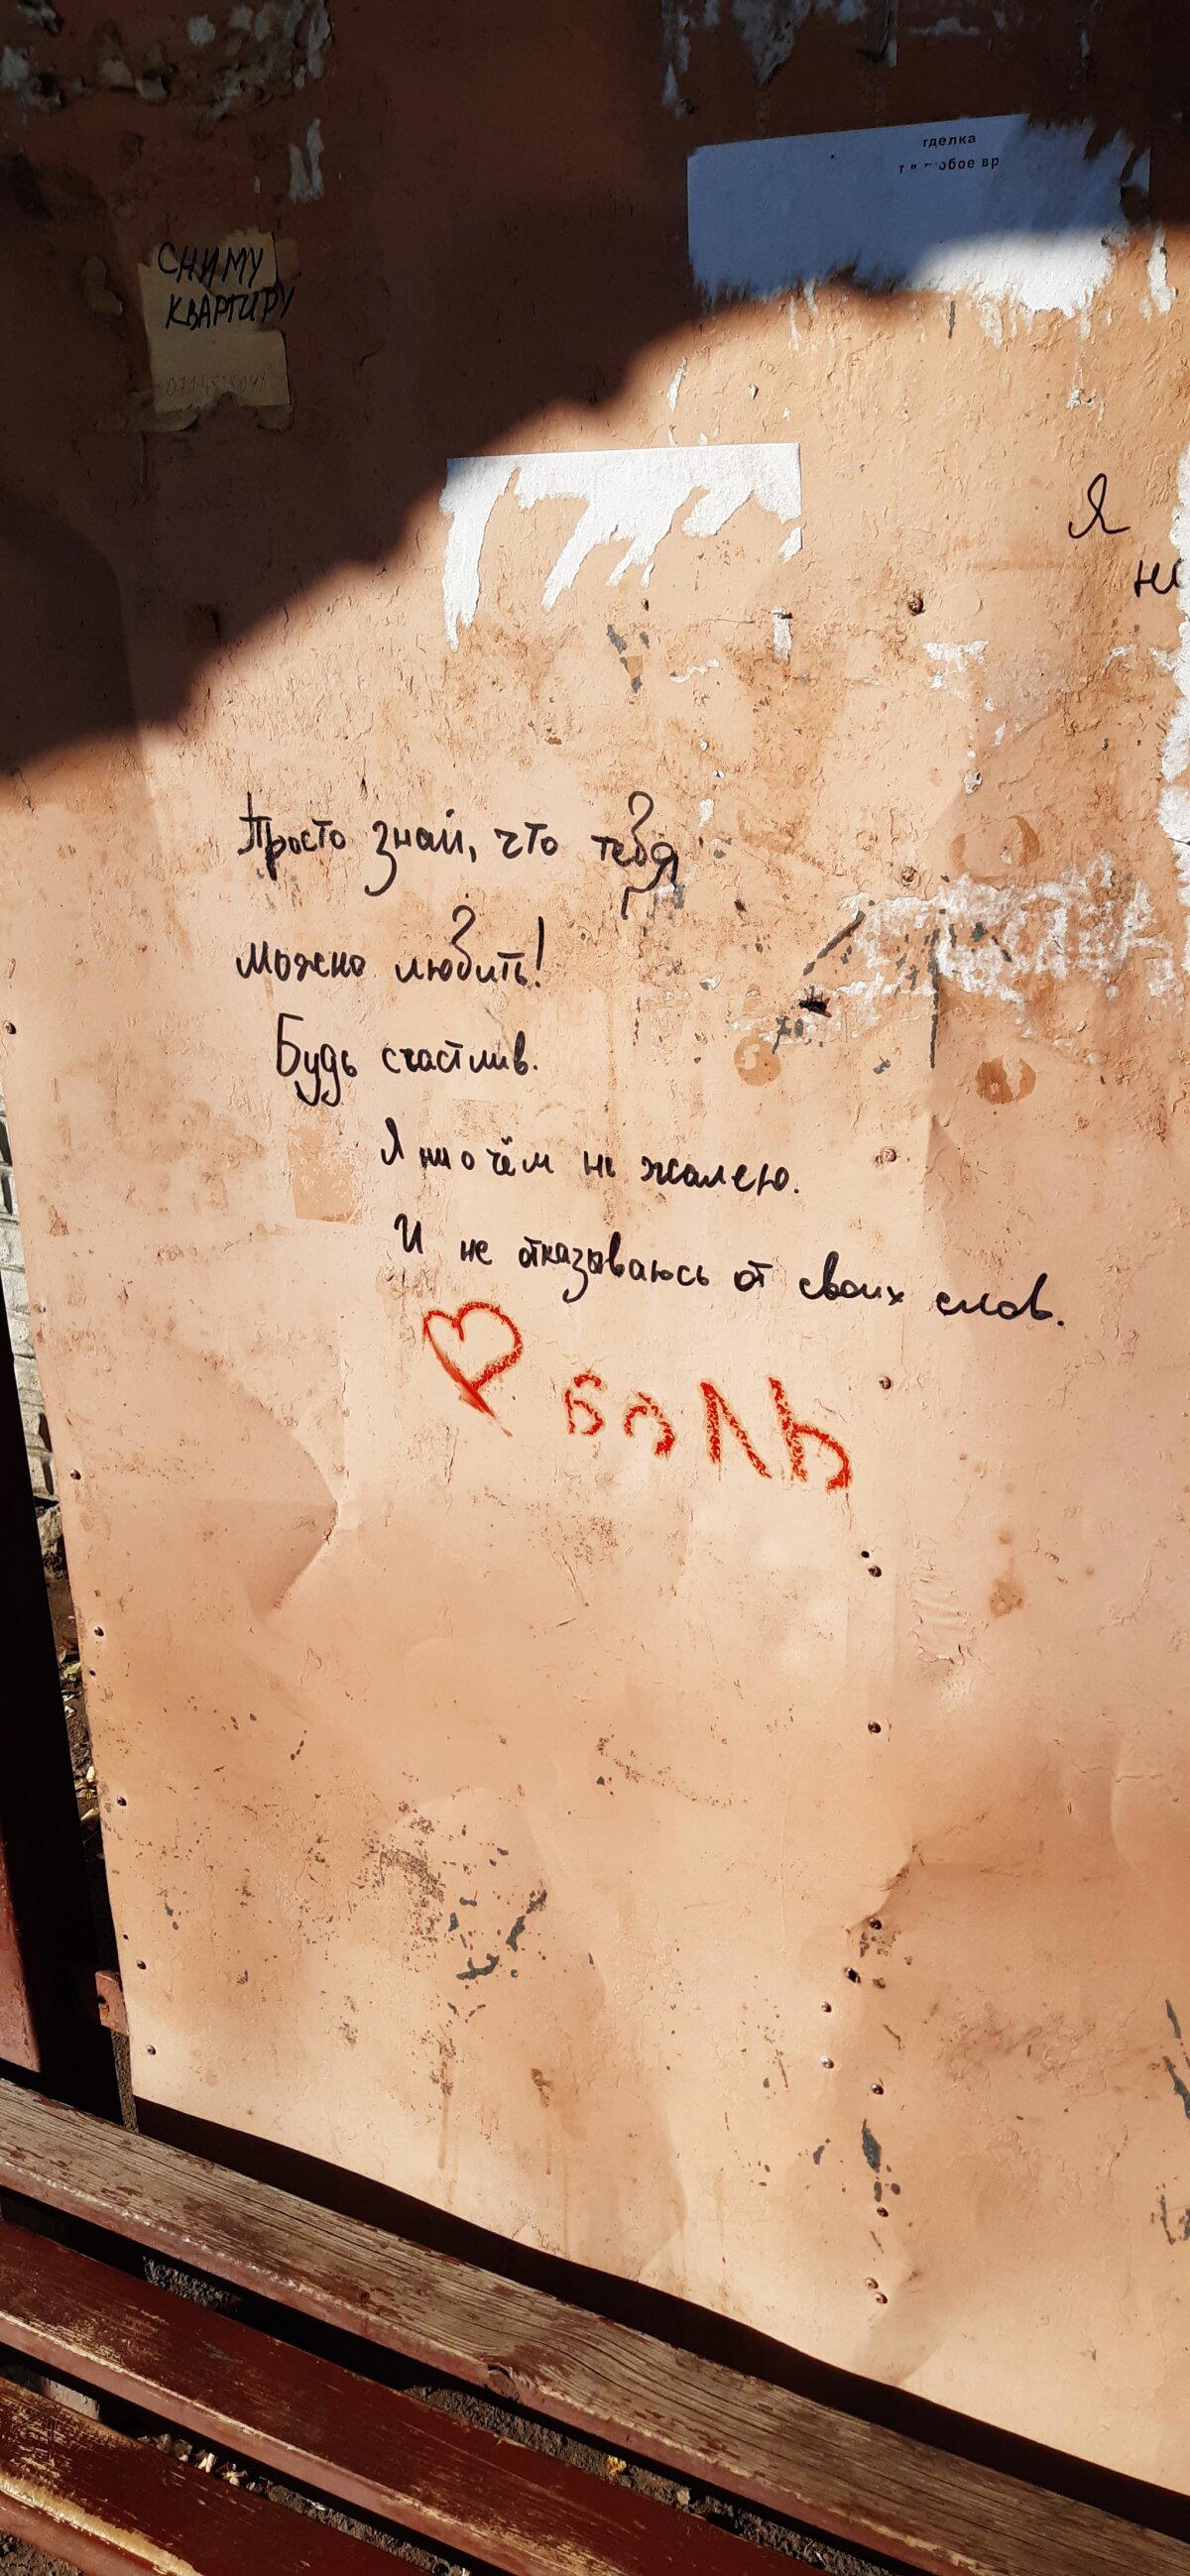 гделка
СНИМУ
КВАРТИРУ
Я
не
Просто знай, что тебя
можно любить!
Будь счастлив.
Я ни о чём не жалею.
И не отказываюсь от своих слов.
БОЛЬ